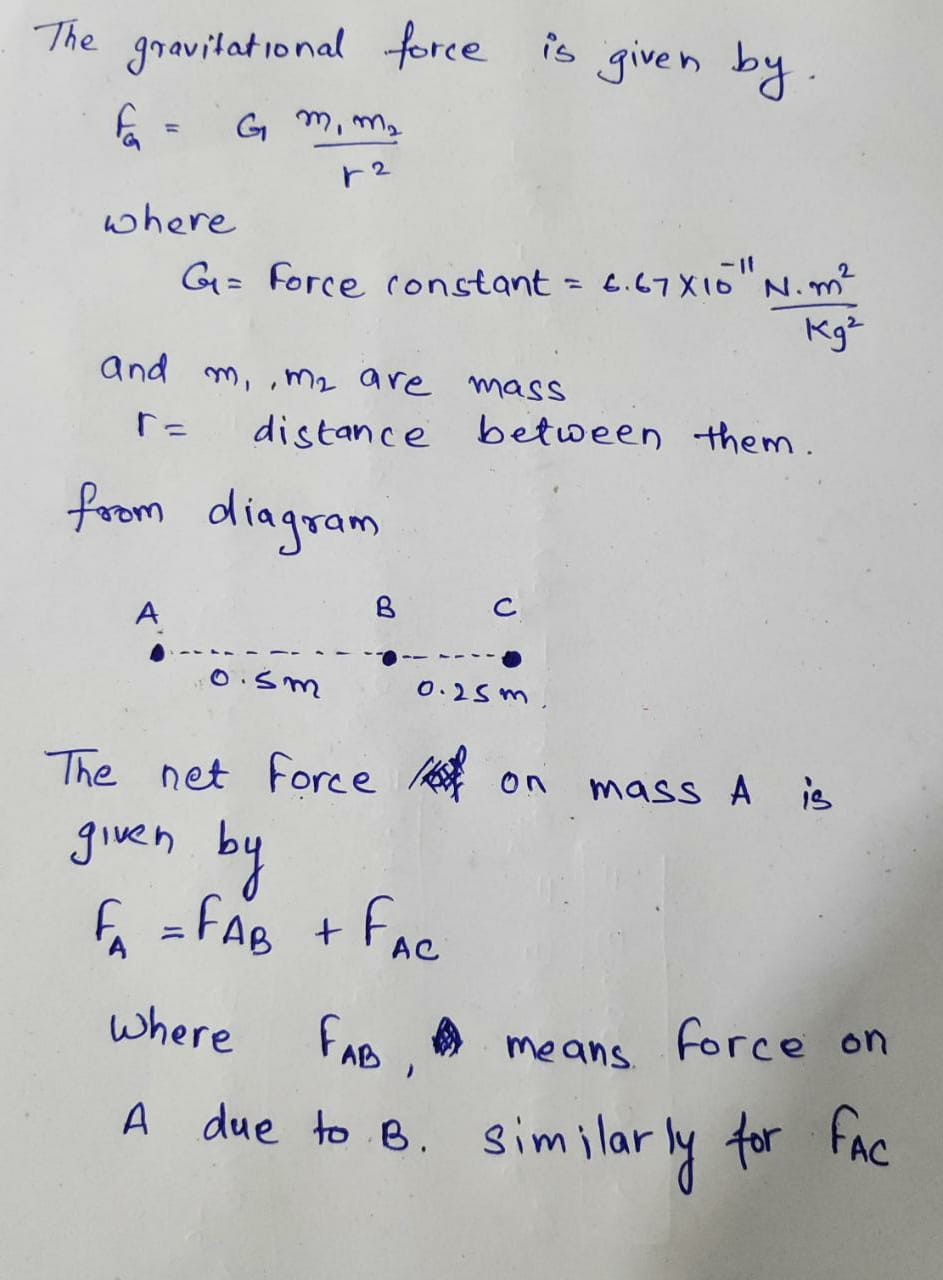 The gravitational force is given by.
F_G = G m₁m₂ / r²
where
G = Force constant = 6.67 X 10⁻¹¹ N.m² / Kg²
and m₁, m₂ are mass
r = distance between them.
from diagram
A B C
0.5m 0.25m.
The net Force on mass A is
given by
F_A = F_AB + F_AC
Where F_AB, means force on
A due to B. similarly for F_AC